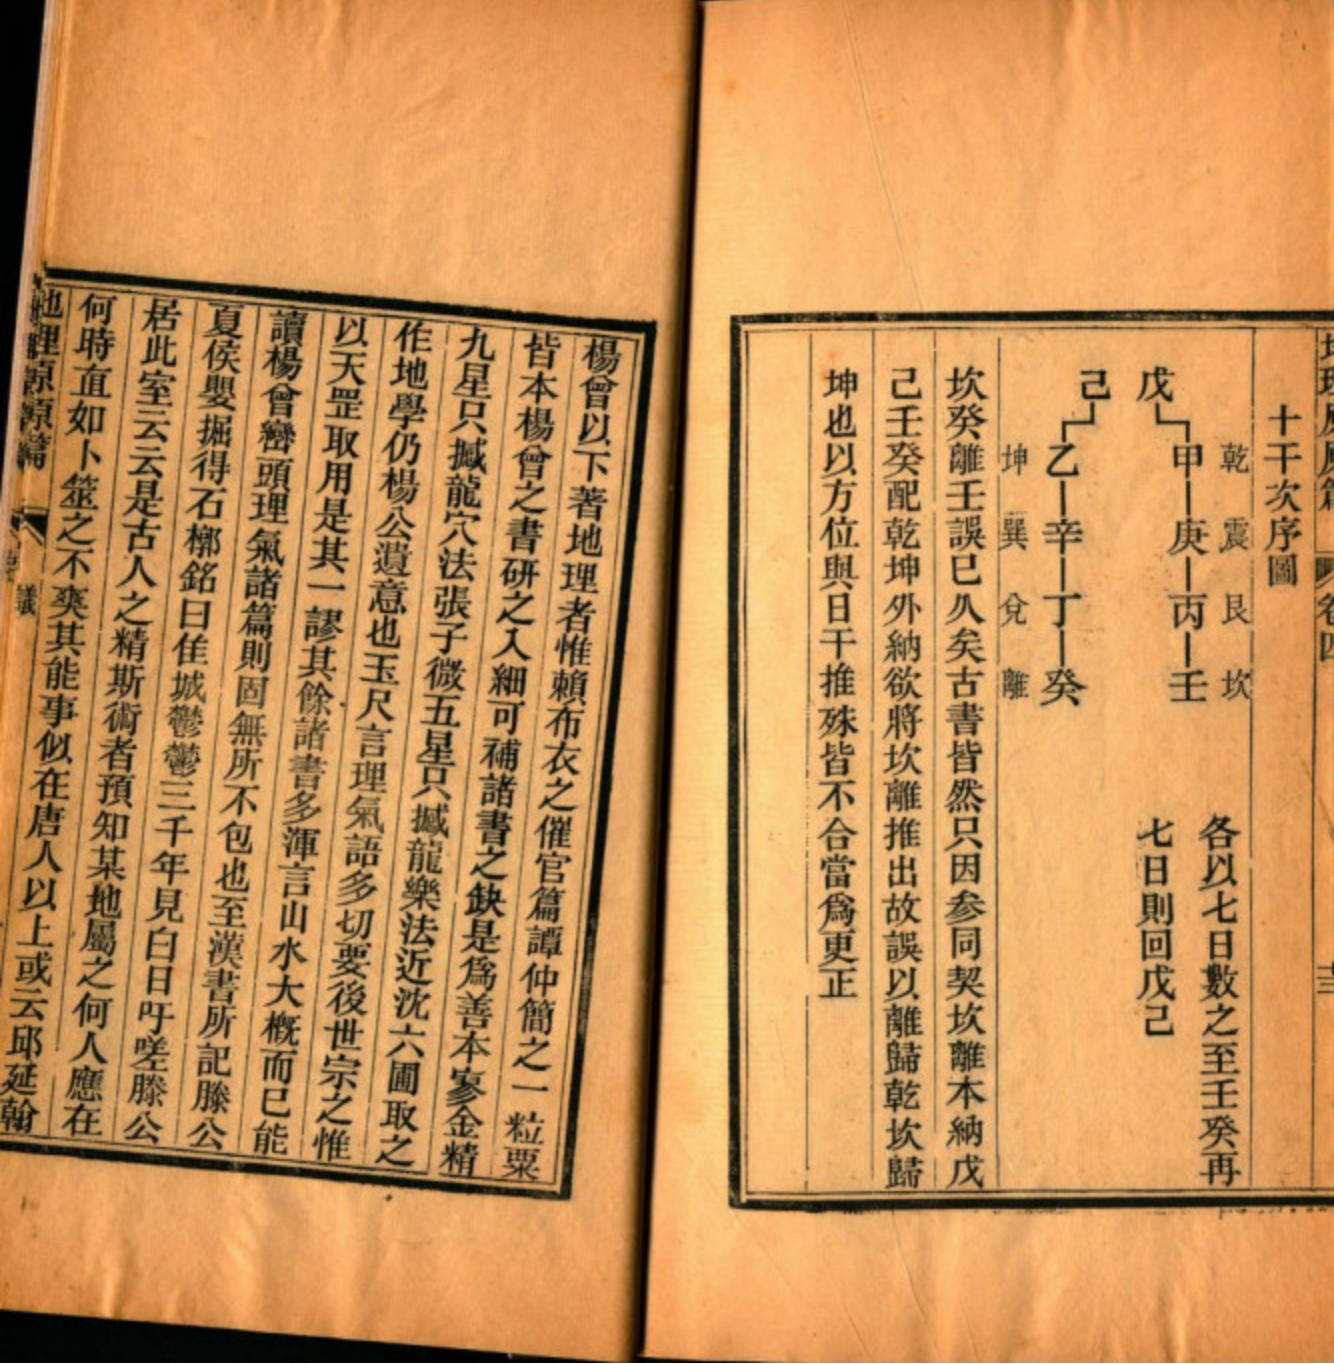 地理原原篇 卷四 十三
十干次序圖
乾 震 艮 坎
戊 甲 庚 丙 壬
己 乙 辛 丁 癸
坤 巽 兌 離
各以七日數之至壬癸再
七日則回戊己
坎癸離壬誤已久矣古書皆然只因參同契坎離本納戊
己壬癸配乾坤外納欲將坎離推出故誤以離歸乾坎歸
坤也以方位與日干推殊皆不合當爲更正
楊曾以下著地理者惟賴布衣之催官篇譚仲簡之一粒粟
皆本楊曾之書研之入細可補諸書之缺是爲善本寥金精
九星只撼龍穴法張子微五星只撼龍樂法近沈六圃取之
作地學仍楊公遺意也玉尺言理氣語多切要後世宗之惟
以天罡取用是其一謬其餘諸書多渾言山水大概而已能
讀楊曾巒頭理氣諸篇則固無所不包也至漢書所記滕公
夏侯嬰掘得石槨銘曰佳城鬱鬱三千年見白日吁嗟滕公
居此室云云是古人之精斯術者預知某地屬之何人應在
何時直如卜筮之不爽其能事似在唐人以上或云邱延翰
地理原原篇 議